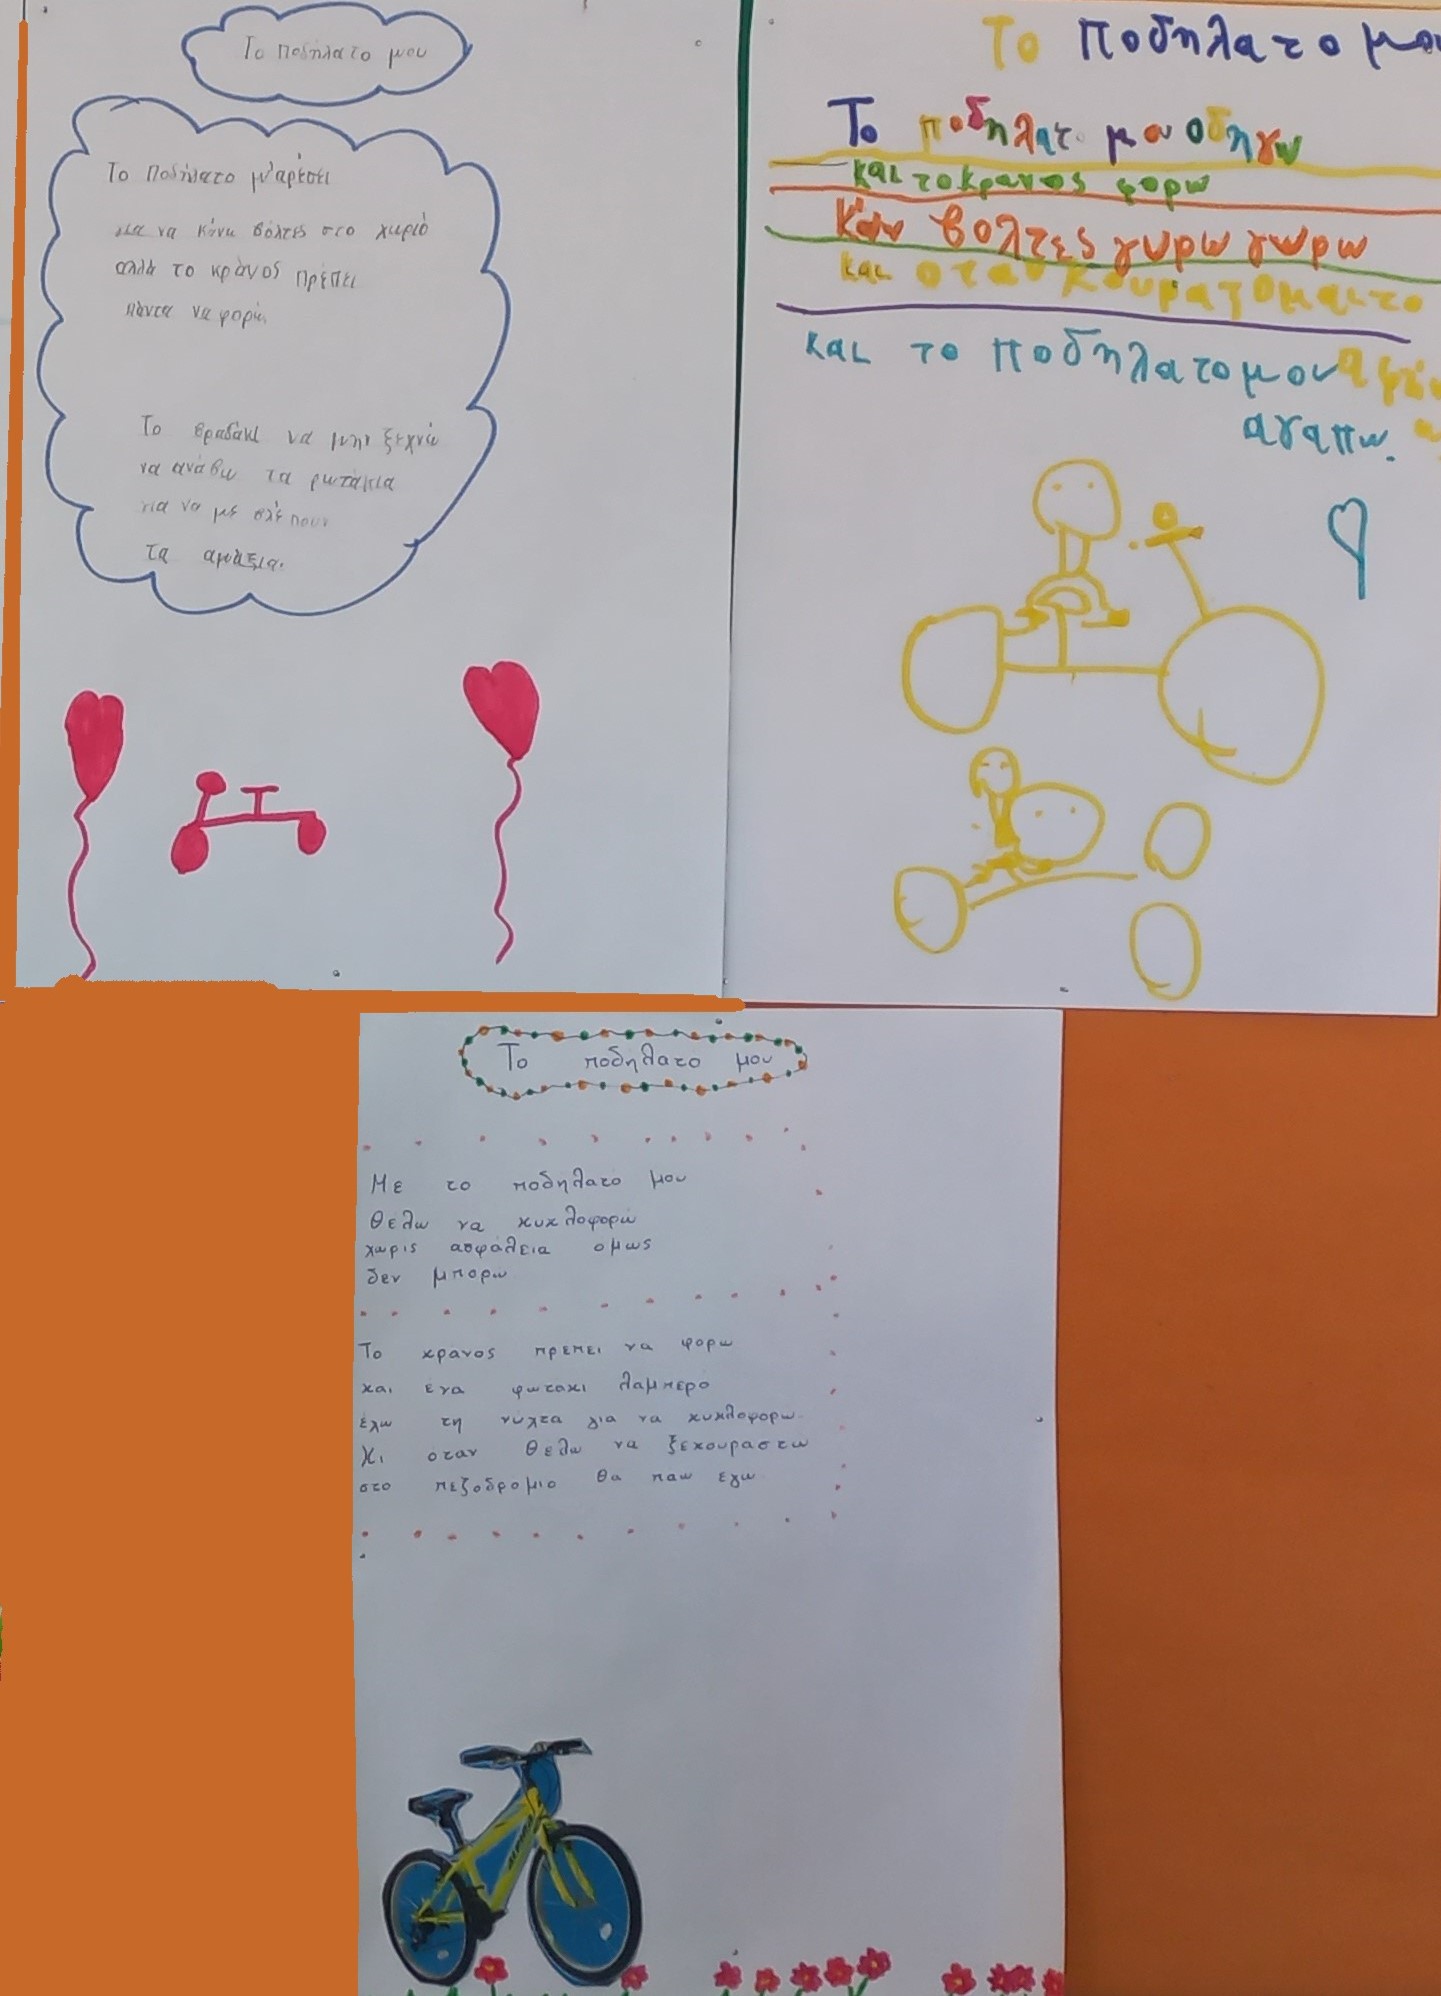 Το ποδήλατο μου
Το ποδήλατο μ'αρέσει
για να κάνω βόλτες στο χωριό
αλλά το κράνος πρέπει
πάντα να φορώ.
Το βραδάκι να μην ξεχνώ
να ανάβω τα φωτάκια
για να με βλέπουν
τα αμάξια.
Το ποδηλατο μου
Το ποδηλατο μου οδηγω
και το κρανος φορω
Κάνω βολτες γυρω γυρω
και οταν κουραζομαι το
αφήνω
και το ποδηλατο μου
αγαπω.
Το ποδηλατο μου
Με το ποδηλατο μου
θέλω να κυκλοφορώ
χωρις ασφάλεια ομως
δεν μπορω
Το κρανος πρεπει να φορω
και ένα φωτακι λαμπερό
έχω τη νύχτα για να κυκλοφορω
Κι οταν θελω να ξεκουραστω
στο πεζοδρομιο θα παω εγω